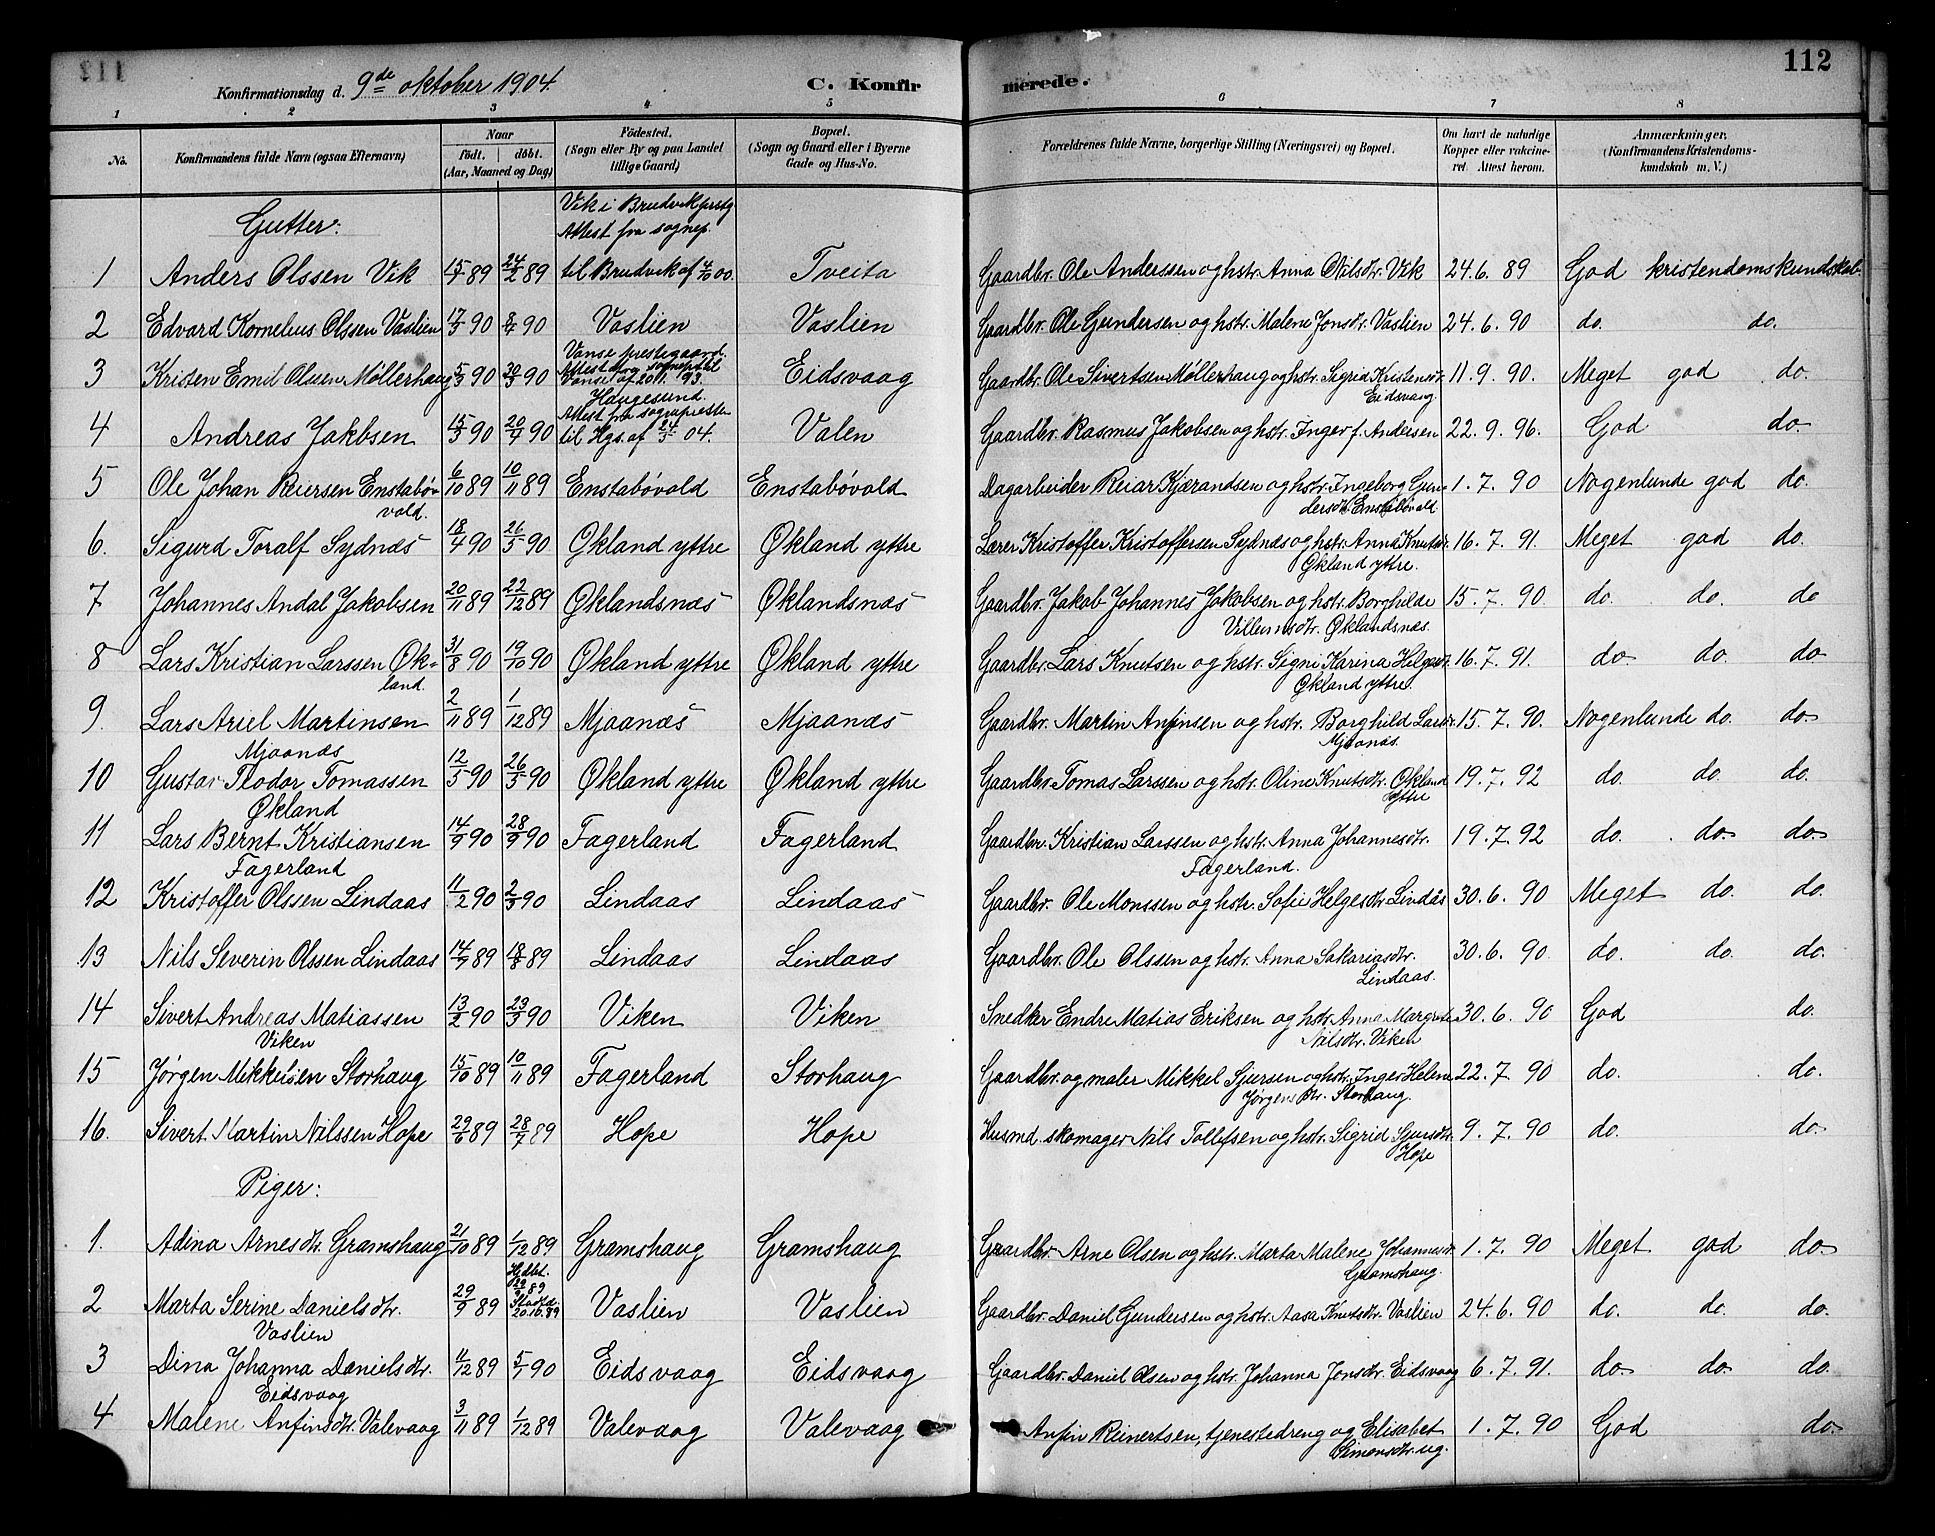 112
Konfirmationsdag d. 9de oktober 1904.
C. Konfirmerede.
1 2 3 4 5 6 7 8
No. Konfirmandens fulde Navn (ogsaa Efternavn) Naar født. døbt. (Aar, Maaned og Dag) Fødested. (Sogn eller By og paa Landet tillige Gaard) Bopæl. (Sogn og Gaard eller i Byerne Gade og Hus-No. Forældrenes fulde Navne, borgerlige Stilling (Næringsvei) og Bopæl. Om havt de naturlige Kopper eller vakcineret. Attest herom. Anmærkninger. (Konfirmandens Kristendomskundskab m. V.)
Gutter:
Vik i Brudvik prstg
Attest fra sognep.
1 Anders Olssen Vik 89 24/2 89 til Brudvik af 4/10 00. Tveita Gaardbr. Ole Anderssen og hstr. Anna Nilsdtr. Vik 24.6.89 God kristendomskundskab
2 Edvard Kornelius Olssen Vaslien 17/3 90 8/4 90 Vaslien Vaslien Gaardbr. Ole Gundersen og hstr. Malene Jonsdtr. Vaslien 24.6.90 do. do.
Vanse prestegaard.
3 Kristen Emil Olssen Møllerhaug 5/3 90 30/3 90 Attest fra sognep. til Vanse af 20/11. 93. Eidsvaag Gaardbr. Ole Sivertsen Møllerhaug og hstr. Sigrid Kristensdtr. 11.9.90. Meget god do.
Eidsvaag.
Haugesund.
Attest fra sognepresten
4 Andreas Jakbsen 15/3 90 20/4 90 til Hgs. af 24/3 04. Valen Gaardbr. Rasmus Jakobsen og hstr. Inger f. Andersen 22.9.96. God do.
5 Ole Johan Reiersen Enstabøvold. 6/10 89 10/11 89 Enstabøvold Enstabøvold Dagarbeider Reiar Kjærandsen og hstr. Ingeborg Gundersdtr. Enstabøvold 1.7.90 Nogenlunde god do.
6. Sigurd Toralf Sydnæs 18/4 90 26/5 90 Økland yttre Økland yttre Lærer Kristoffer Kristoffersen Sydnæs og hstr. Anna Knutsdtr. 16.7.91. Meget god do.
Økland yttre.
7 Johannes Andal Jakobsen 20/11 89 22/12 89 Øklandsnæs Øklandsnæs Gaardbr. Jakob Johannes Jakobsen og hstr. Borghilde 15.7.90. do. do. do
Villumsdtr. Øklandsnæs.
8 Lars Kristian Larssen Økland. 31/8 90 19/10 90 Økland yttre Økland yttre Gaardbr. Lars Knutsen og hstr. Signi Karina Helgesdtr. 16.7.91. do do. do
Økland yttre.
9. Lars Ariel Martinsen 2/11 89 1/12 89 Mjaanæs Mjaanæs Gaardbr. Martin Anfinsen og hstr. Borghild Larsdtr. 15.7.90. Nogenlunde do. do
Mjaanæs Mjaanæs.
10 Gustav Teodor Tomassen 12/5 90 26/5 90 Økland yttre Økland yttre Gaardbr. Tomas Larssen og hstr. Oline Knutsdtr. Økland 19.7.92 do. do. do.
Økland yttre
11 Lars Bernt Kristiansen 14/9 90 28/9 90 Fagerland Fagerland Gaardbr. Kristian Larssen og hstr. Anna Johannesdtr. 19.7.92 do. do. do.
Fagerland Fagerland.
12 Kristoffer Olssen Lindaas 11/2 90 2/3 90 Lindaas Lindaas Gaardbr. Ole Monssen og hstr. Sofie Helgesdtr. Lindås 30.6.90 Meget do. do.
13 Nils Severin Olssen Lindaas 14/7 89 18/8 89 Lindaas Lindaas Gaardbr. Ole Olssen og hstr. Anna Sakariasdtr. 30.6.90 do. do. do.
Lindaas.
14 Sivert Andreas Matiassen 13/2 90 23/3 90 Viken Viken Snedker Endre Matias Eriksen og hstr. Anna Margrete 30.6.90 God do.
Viken Nilsdtr. Viken
15 Jørgen Mikkelsen Storhaug 15/10 89 10/11 89 Fagerland Storhaug Gaardbr. og maler Mikkel Sjursen og hstr. Inger Helene 22.7.90 do. do.
Jørgensdtr. Storhaug.
16. Sivert Martin Nilssen Hope 29/6 89 28/7 89 Hope Hope Husmd. skomager Nils Tollefsen og hstr. Sigrid Sjursdtr. 9.7.90 do. do.
Hope
Piger:
1. Adina Arnesdtr. Gramshaug 21/10 89 1/12 89 Gramshaug Gramshaug Gaardbr. Arne Olsen og hstr. Marta Malene Johannesdtr. 1.7.90 Meget god do.
Gramshaug.
2 Marta Serine Danielsdtr. 29/9 89 Hjdbt. 89 Stadf. 20.10.89 Vaslien Vaslien Gaardbr. Daniel Gundersen og hstr. Aasa Knutsdtr. Vaslien 24.6.90 do. do. do.
Vaslien
3 Dina Johanna Danielsdtr. 11/12 89 5/1 90 Eidsvaag Eidsvaag Gaardbr. Daniel Olsen og hstr. Johanna Jonsdtr. Eidsvaag 6.7.91. do. do. do.
Eidsvaag
4 Malene Anfinsdtr. Valevaag 3/11 89 1/12 89 Valevaag Valevaag Anfin Reinertsen, tjenestedreng og Elisabet 1.7.90 God do.
Simonsdtr. ug.